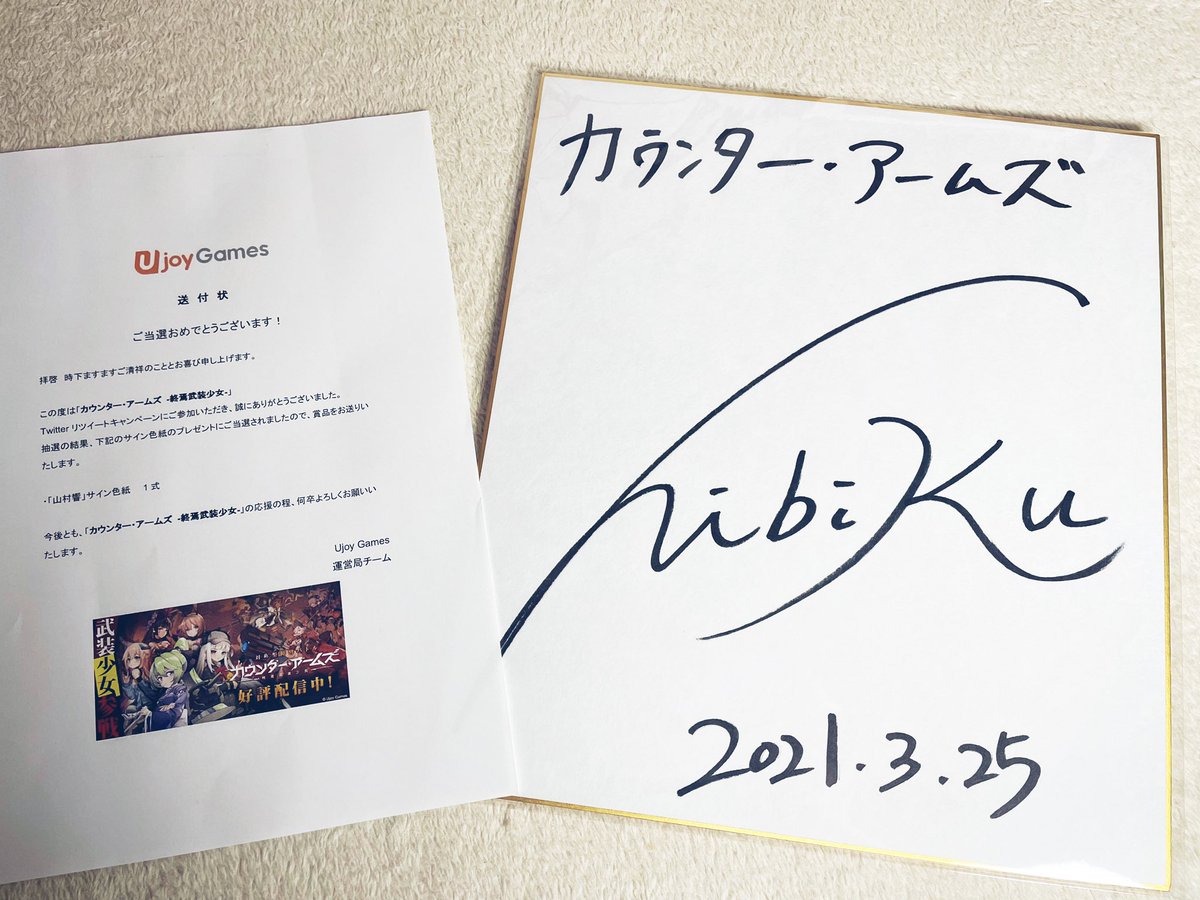 Ujoy Games
送 付 状
ご当選おめでとうございます！
拝啓 時下ますますご清祥のこととお喜び申し上げます。
この度は「カウンター・アームズ -終焉武装少女-」
Twitter リツイートキャンペーンにご参加いただき、誠にありがとうございました。
抽選の結果、下記のサイン色紙のプレゼントにご当選されましたので、賞品をお送りい
たします。
・「山村響」サイン色紙 1 式
今後とも、「カウンター・アームズ -終焉武装少女-」の応援の程、何卒よろしくお願いい
たします。
Ujoy Games
運営局チーム
武装少女参戦
カウンター・アームズ
好評配信中！
© Ujoy Games
カウンター・アームズ
hibiKu
2021.3.25